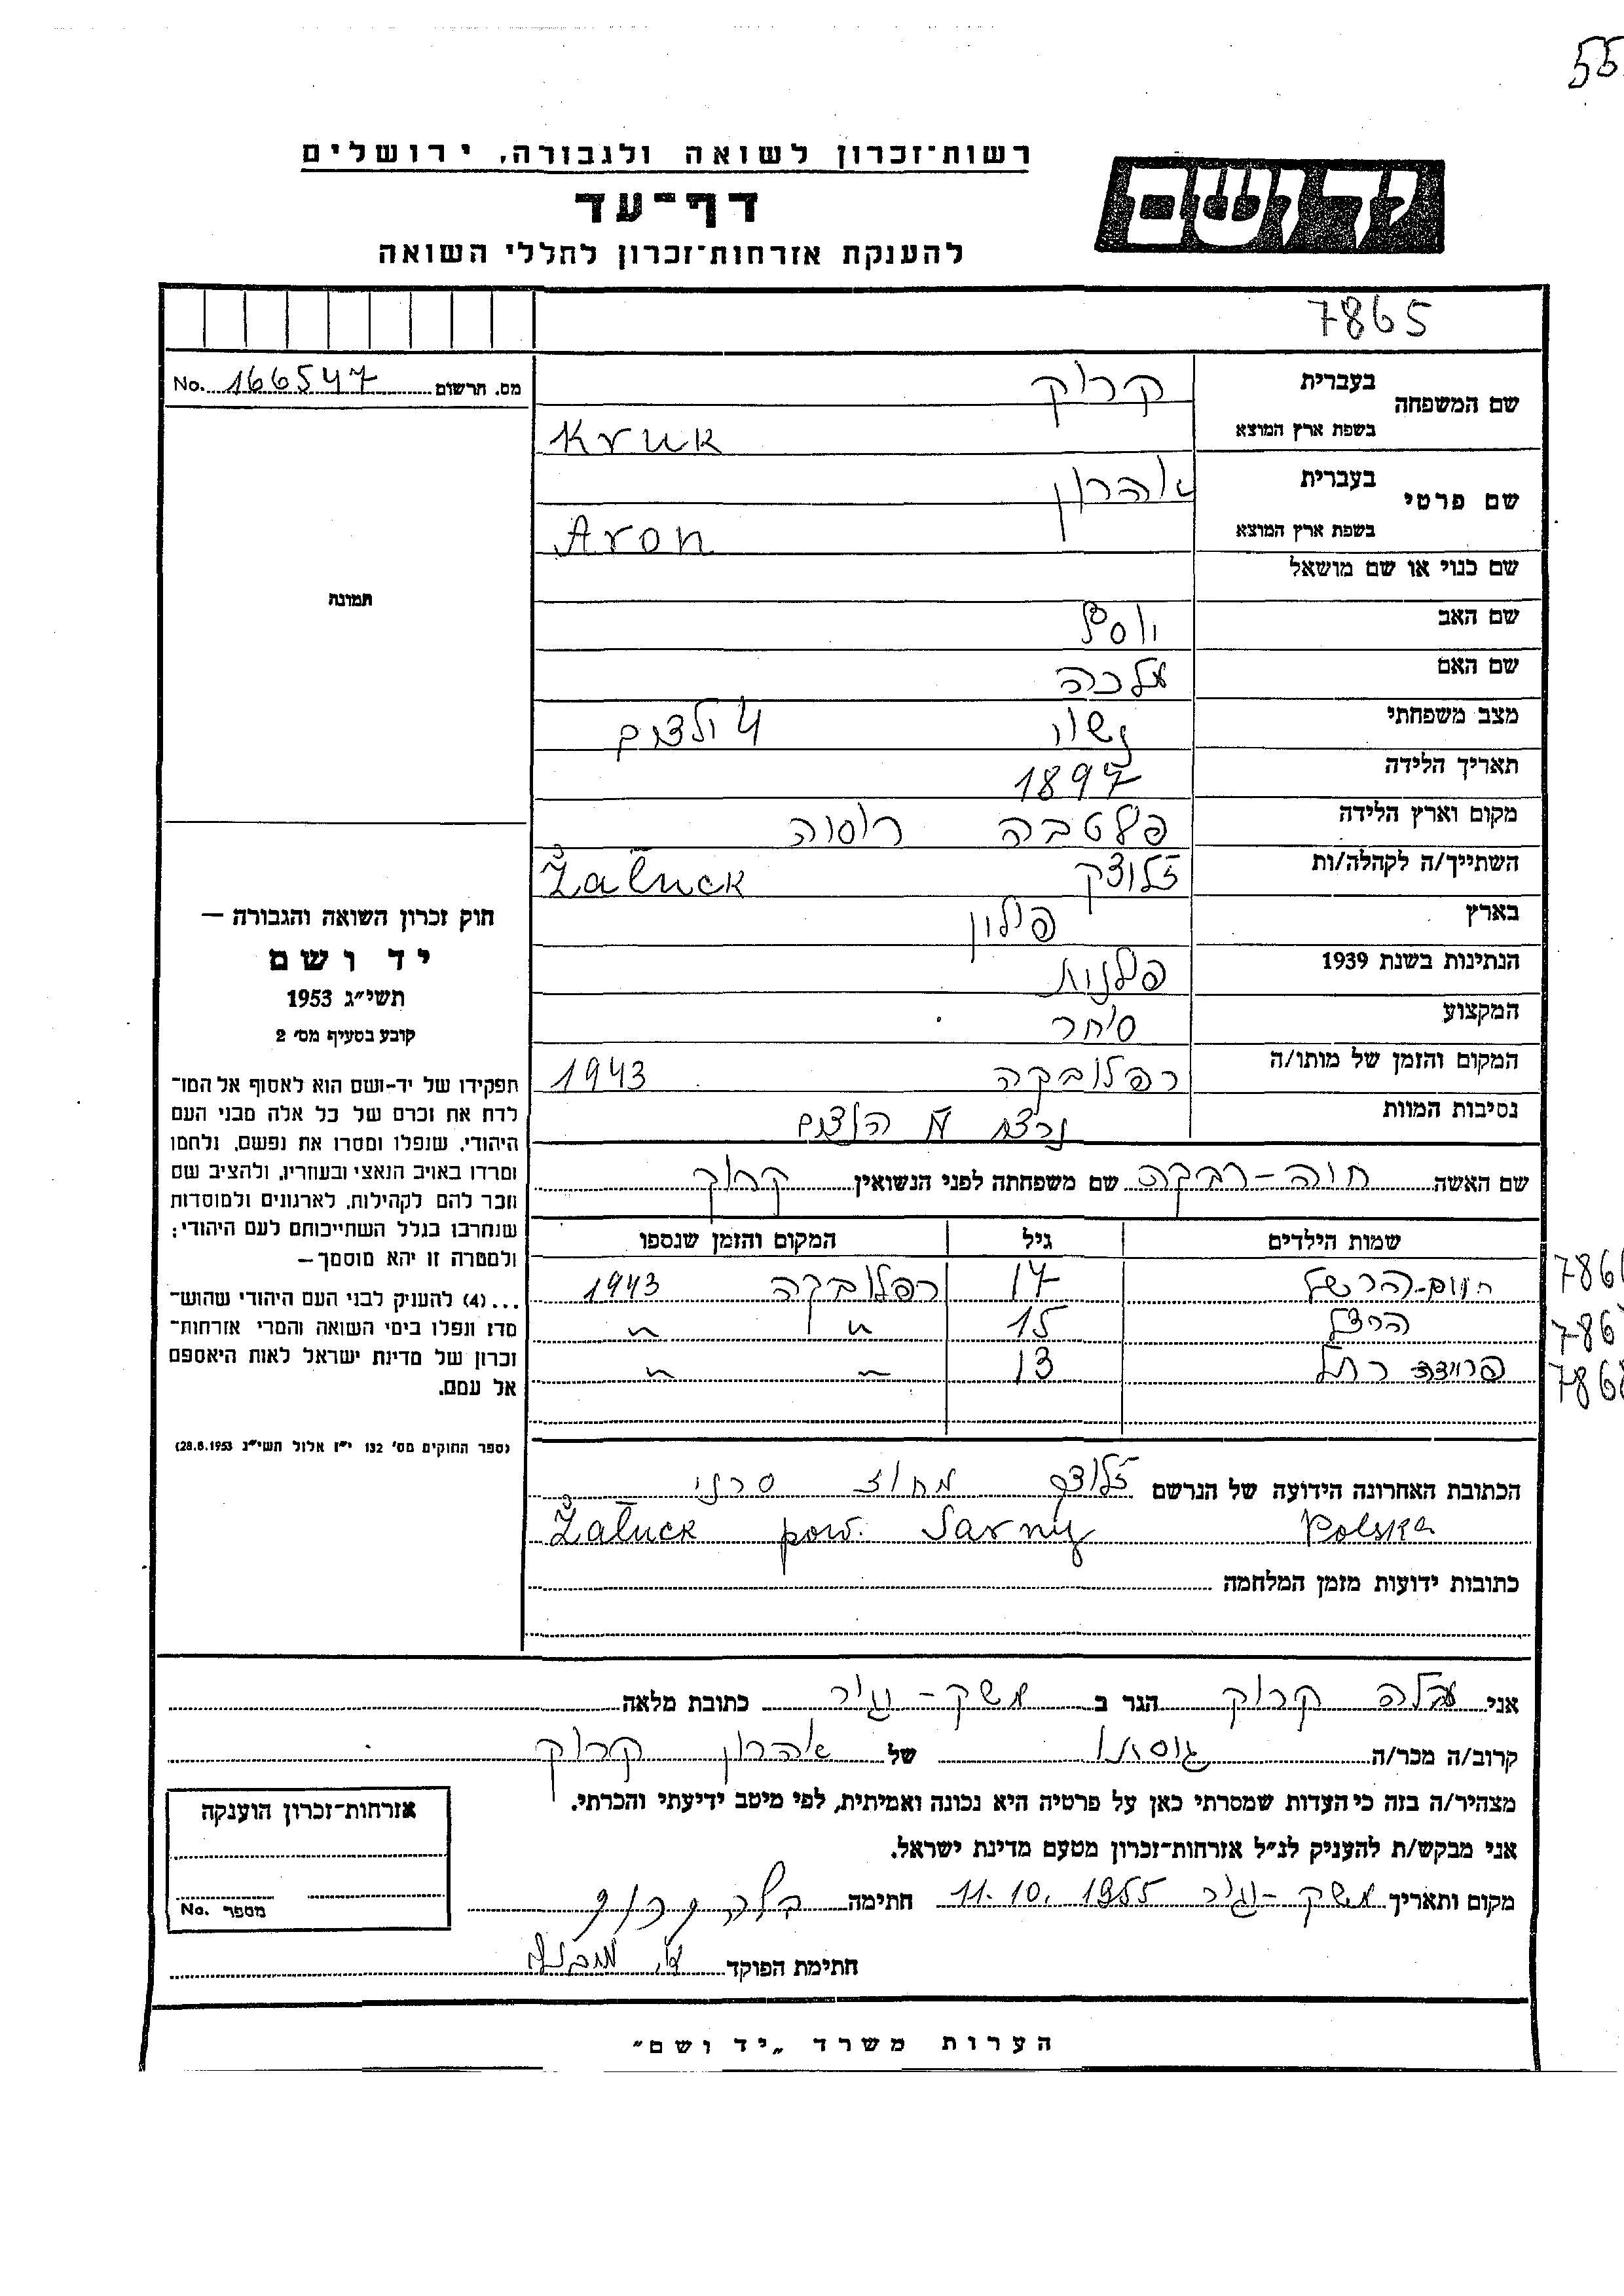 55
רשות־זכרון לשואה ולגבורה, ירושלים
דף־עד
להענקת אזרחות־זכרון לחללי השואה
יד ושם
7865
מס. תרשום No. 166547
שם המשפחה
בעברית קרוק
בשפת ארץ המוצא Kruk
שם פרטי
בעברית אהרון
בשפת ארץ המוצא Aron
שם כנוי או שם מושאל
שם האב יוסף
שם האם
מצב משפחתי נשוי 4 ילדים
תאריך הלידה 1897
מקום וארץ הלידה פלטבה רוסיה
השתייך/ה לקהלה/ות זלוצק Żałuck
בארץ פולין
הנתינות בשנת 1939 פולנית
המקצוע סוחר
המקום והזמן של מותו/ה רפלובקה 1943
נסיבות המוות נרצח ע״י הנצים
שם האשה חוה-רבקה שם משפחתה לפני הנשואין קרוק
שמות הילדים גיל המקום והזמן שנספו
חיים-הרשל 17 רפלובקה 1943 786
הרצל 15 " " 786
רחל 13 " " 7868
הכתובת האחרונה הידועה של הנרשם זלוצק מחוז סרני
Żałuck pow. Sarny Polska
כתובות ידועות מזמן המלחמה
תמונה
חוק זכרון השואה והגבורה —
יד ושם
תשי״ג 1953
קובע בסעיף מס׳ 2
תפקידו של יד-ושם הוא לאסוף אל המו־
לדת את זכרם של כל אלה מבני העם
היהודי, שנפלו ומסרו את נפשם, נלחמו
ומרדו באויב הנאצי ובעוזריו, ולהציב שם
וזכר להם לקהילות, לארגונים ולמוסדות
שנחרבו בגלל השתייכותם לעם היהודי;
ולמטרה זו יהא מוסמך—
...(4) להעניק לבני העם היהודי שהוש־
מדו ונפלו בימי השואה והמרי אזרחות־
זכרון של מדינת ישראל לאות היאספם
אל עמם.
(ספר החוקים מס׳ 132 י״ז אלול תשי״ג 28.8.1953)
אני קרוק הגר ב משק-יגור כתובת מלאה
קרוב/ה מכר/ה גיסתו של אהרון קרוק
מצהיר/ה בזה כי העדות שמסרתי כאן על פרטיה היא נכונה ואמיתית, לפי מיטב ידיעתי והכרתי.
אני מבקש/ת להעניק לנ״ל אזרחות־זכרון מטעם מדינת ישראל.
מקום ותאריך משק-יגור 11.10.1955 חתימה
חתימת הפוקד
אזרחות־זכרון הוענקה
מספר No.
הערות משרד „יד ושם״